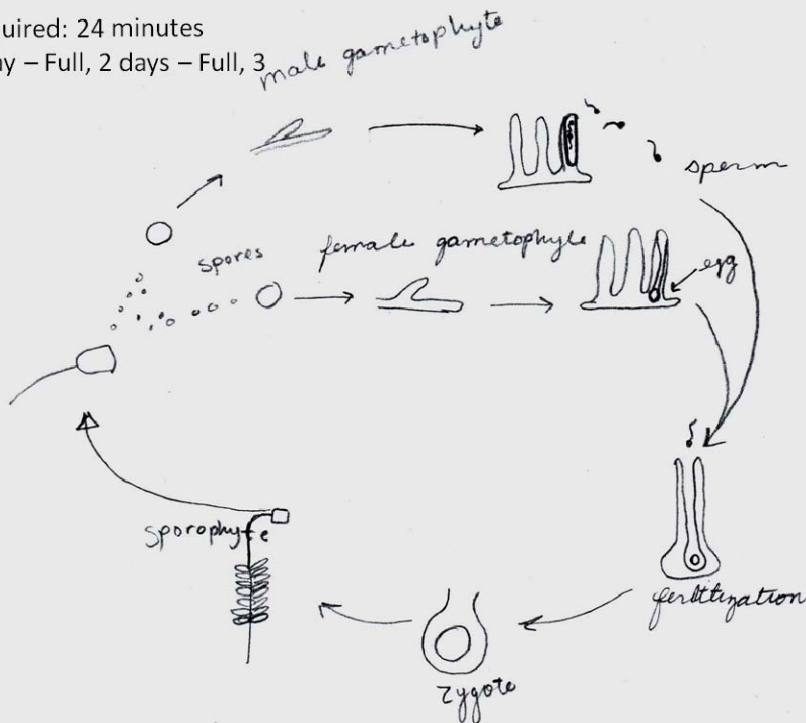 uired: 24 minutes
ay – Full, 2 days – Full, 3
male gametophyte
sperm
spores
female gametophyte
egg
sporophyte
fertilization
zygote